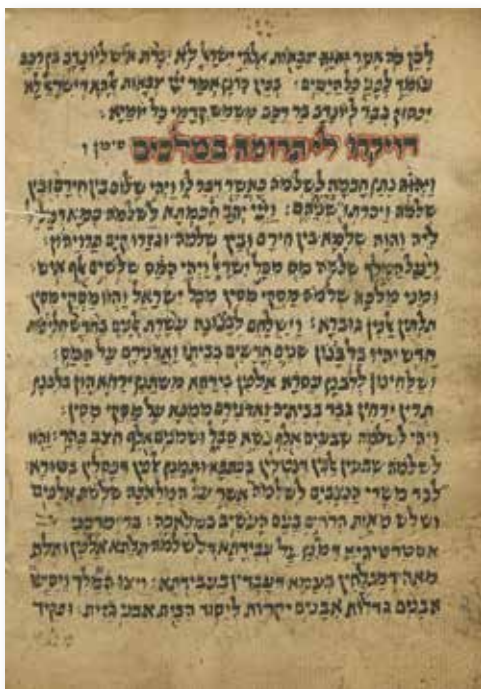 לכן כה אמר יהוה צבאות אלהי ישראל לא יכרת איש ליונדב בן רכב
עומד לפני כל הימים : בכין כדנן אמר יי צבאות אלהא דישראל לא
יפסוק גבר ליונדב בר רכב משמש קדמי כל יומיא :
דויקחו לי תרומה במלכים סימן ו
ויהוה נתן חכמה לשלמה כאשר דבר לו ויהי שלום בין חירם ובין
שלמה ויכרתו שניהם : ויי יהב חכמתא לשלמה כמא דמליל
ליה והוה שלמא בין חירם ובין שלמה וגזרו קים תרויהון :
ויעל המלך שלמה מס מכל ישראל ויהי המס שלשים אלף איש :
ומני מלכא שלמה מסקי מסין מכל ישראל והוו מסקי מסין
תלתין אלפין גוברא : וישלחם לבנונה עשרת אלפים בחדש חליפות
חדש יהיו בלבנון שנים חדשים בביתו ואדנירם על המס :
ושלחינון ללבנן עסרא אלפין בירחא משתנן ירחא הון בלבנן
תרין ירחין גבר בביתיה ואדנירם ממנא על מסקי מסין :
ויהי לשלמה שבעים אלף נשא סבל ושמנים אלף חצב בהר : והוו
לשלמה שבעין אלפין דנטלין בכתפא ותמנן אלפין דפסלין בטורא :
לבד משרי הנצבים לשלמה אשר על המלאכה שלשת אלפים
ושלש מאות הרדים בעם העשים במלאכה : בר מרבני
אסטרטיגיא דממנן על עבידתא דלשלמה תלתא אלפין ותלת
מאה דמפלחין בעמא דעבדין בעבידתא : ויצו המלך ויסיעו
אבנים גדלות אבנים יקרות ליסוד הבית אבני גזית : ופקיד